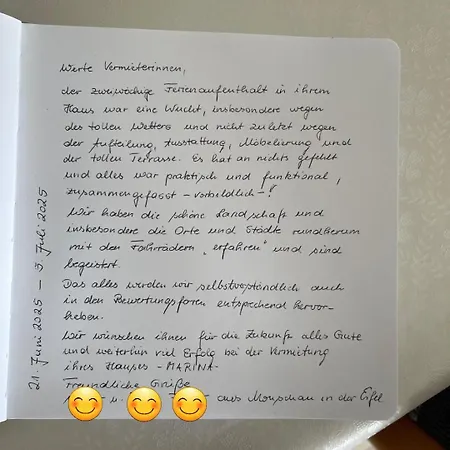 Werte Vermieterinnen,
der zweiwöchige Ferienaufenthalt in ihrem
Haus war eine Wucht, insbesondere wegen
des tollen Wetters und nicht zuletzt wegen
der Aufteilung, Ausstattung, Möbelierung und
der tollen Terrasse. Es hat an nichts gefehlt
und alles war praktisch und funktional,
zusammengefasst - vorbildlich -!
Wir haben die schöne Landschaft und
insbesondere die Orte und Städte rundherum
mit den Fahrrädern „erfahren" und sind
begeistert.
Das alles werden wir selbstverständlich auch
in den Bewertungsforen entsprechend hervor-
heben.
Wir wünschen ihnen für die Zukunft alles Gute
und weiterhin viel Erfolg bei der Vermietung
ihres Hauses - MARINA-
Freundliche Grüße
u. aus Monschau in der Eifel
21. Juni 2025 - 5. Juli 2025